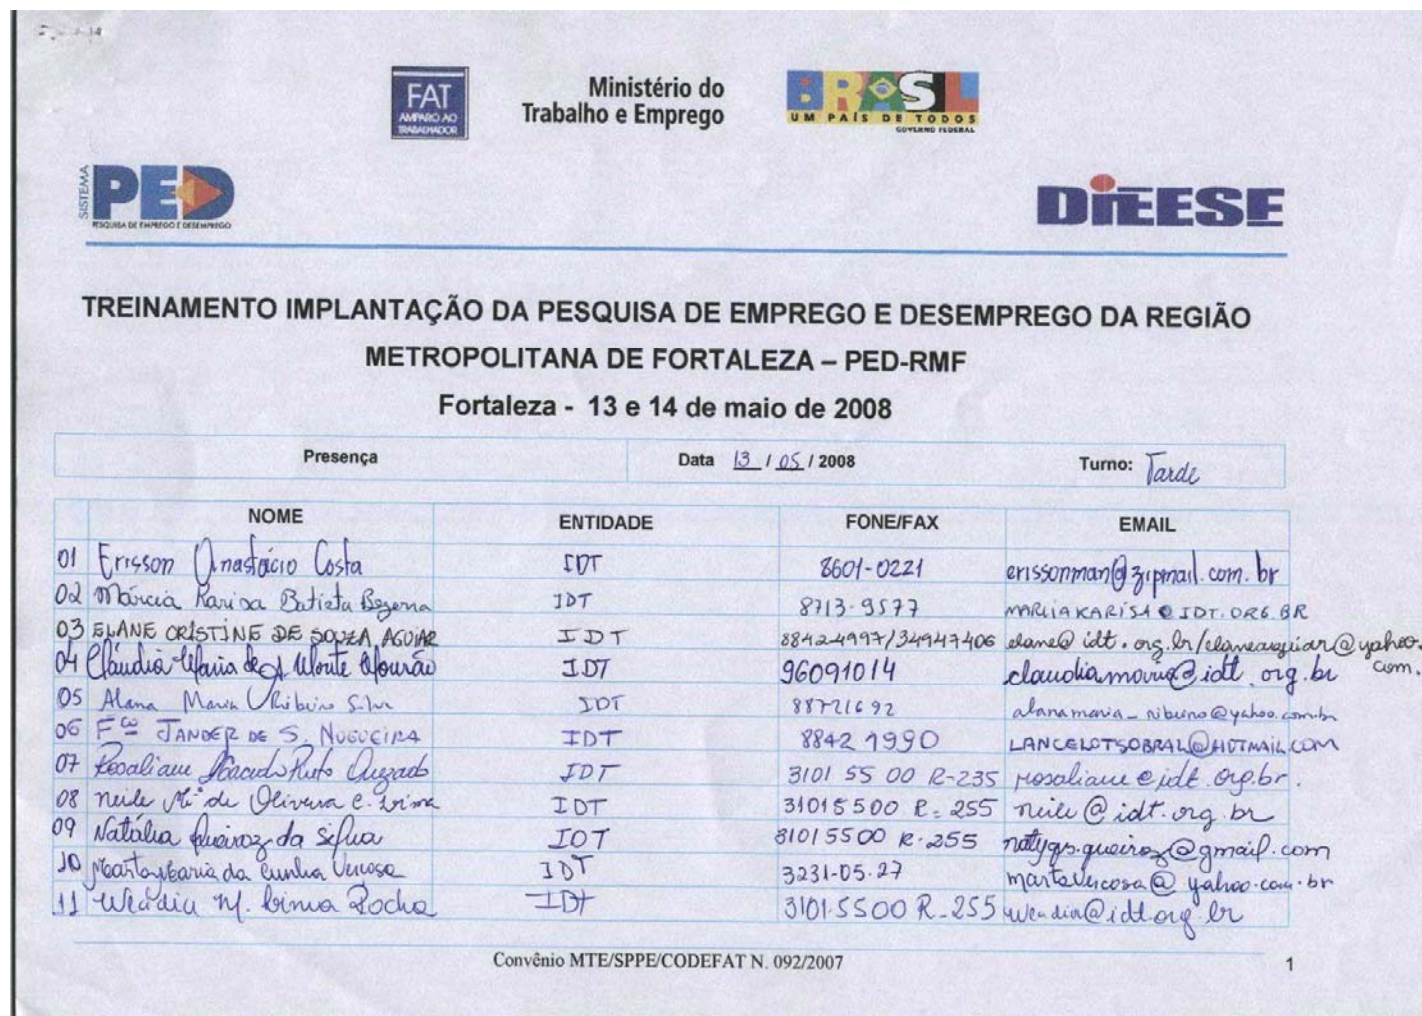 FAT
AMPARO AO
TRABALHADOR
Ministério do
Trabalho e Emprego
BRASIL
UM PAÍS DE TODOS
GOVERNO FEDERAL
SISTEMA
PED
PESQUISA DE EMPREGO E DESEMPREGO
DIEESE
TREINAMENTO IMPLANTAÇÃO DA PESQUISA DE EMPREGO E DESEMPREGO DA REGIÃO
METROPOLITANA DE FORTALEZA – PED-RMF
Fortaleza - 13 e 14 de maio de 2008
Presença Data 13 / 05 / 2008 Turno: Tarde
NOME ENTIDADE FONE/FAX EMAIL
01 Erisson Anastácio Costa IDT 8601-0221 erissonman@zipmail.com.br
02 Márcia Karisa Batista Bezerra IDT 8713-9577 @IDT.ORG.BR
03 ELANE CRISTINE DE SOUZA AGUIAR IDT 88424997/34947406 elane@idt.org.br/elaneaguiar@yahoo.com.
04 Cláudia Maria de Monte Mourão IDT 96091014 claudiamaria@idt.org.br
05 Alana Maria Ribeiro Silva IDT 88721692 alanamaria_ribeiro@yahoo.com.br
06 Fco JANDER DE S. NOGUEIRA IDT 8842 1990 LANCELOTSOBRAL@HOTMAIL.COM
07 Rosaliane Macedo Pinto Quezado IDT 3101 55 00 R-235 rosaliane@idt.org.br.
08 Neile Mª de Oliveira C. Lima IDT 31015500 R-255 neile@idt.org.br
09 Natália Queiroz da Silva IDT 31015500 R-255 @gmail.com
10 Marta Maria da Cunha Veicosa IDT 3231-05-27 martaveicosa@yahoo.com.br
11 M. Lima Rocha IDT 3101-5500 R-255 @idt.org.br
Convênio MTE/SPPE/CODEFAT N. 092/2007 1